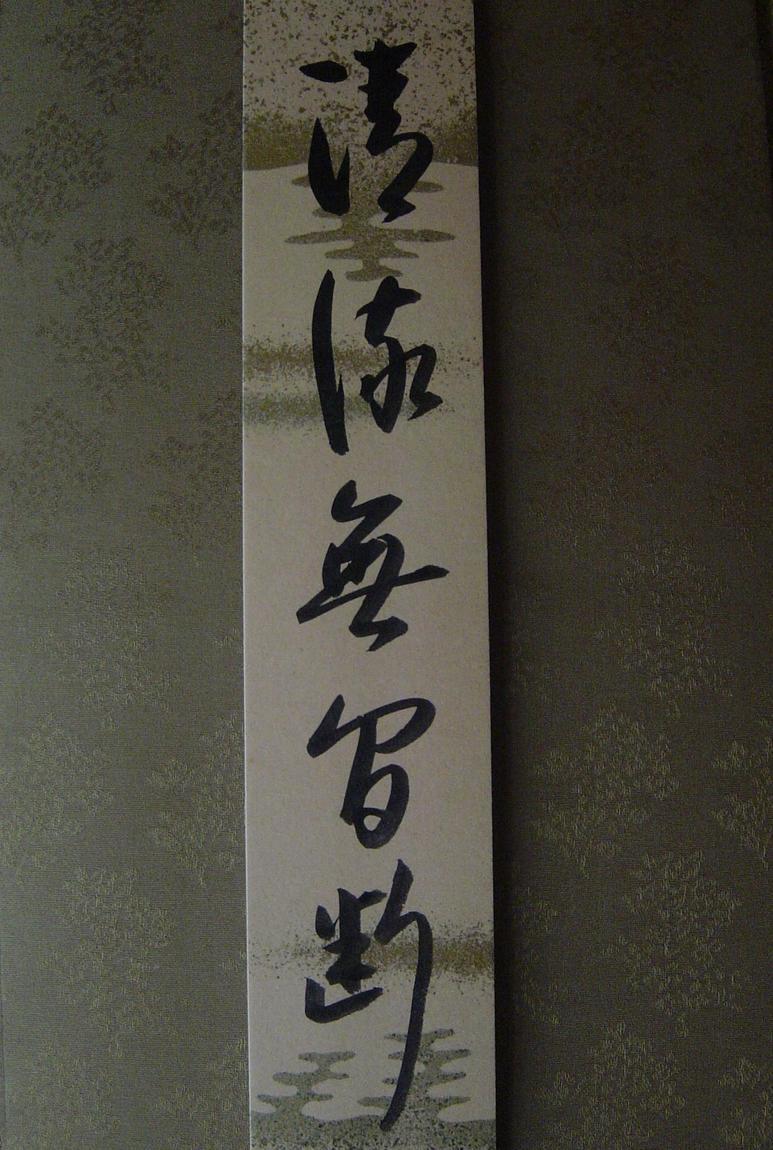 清流無間断